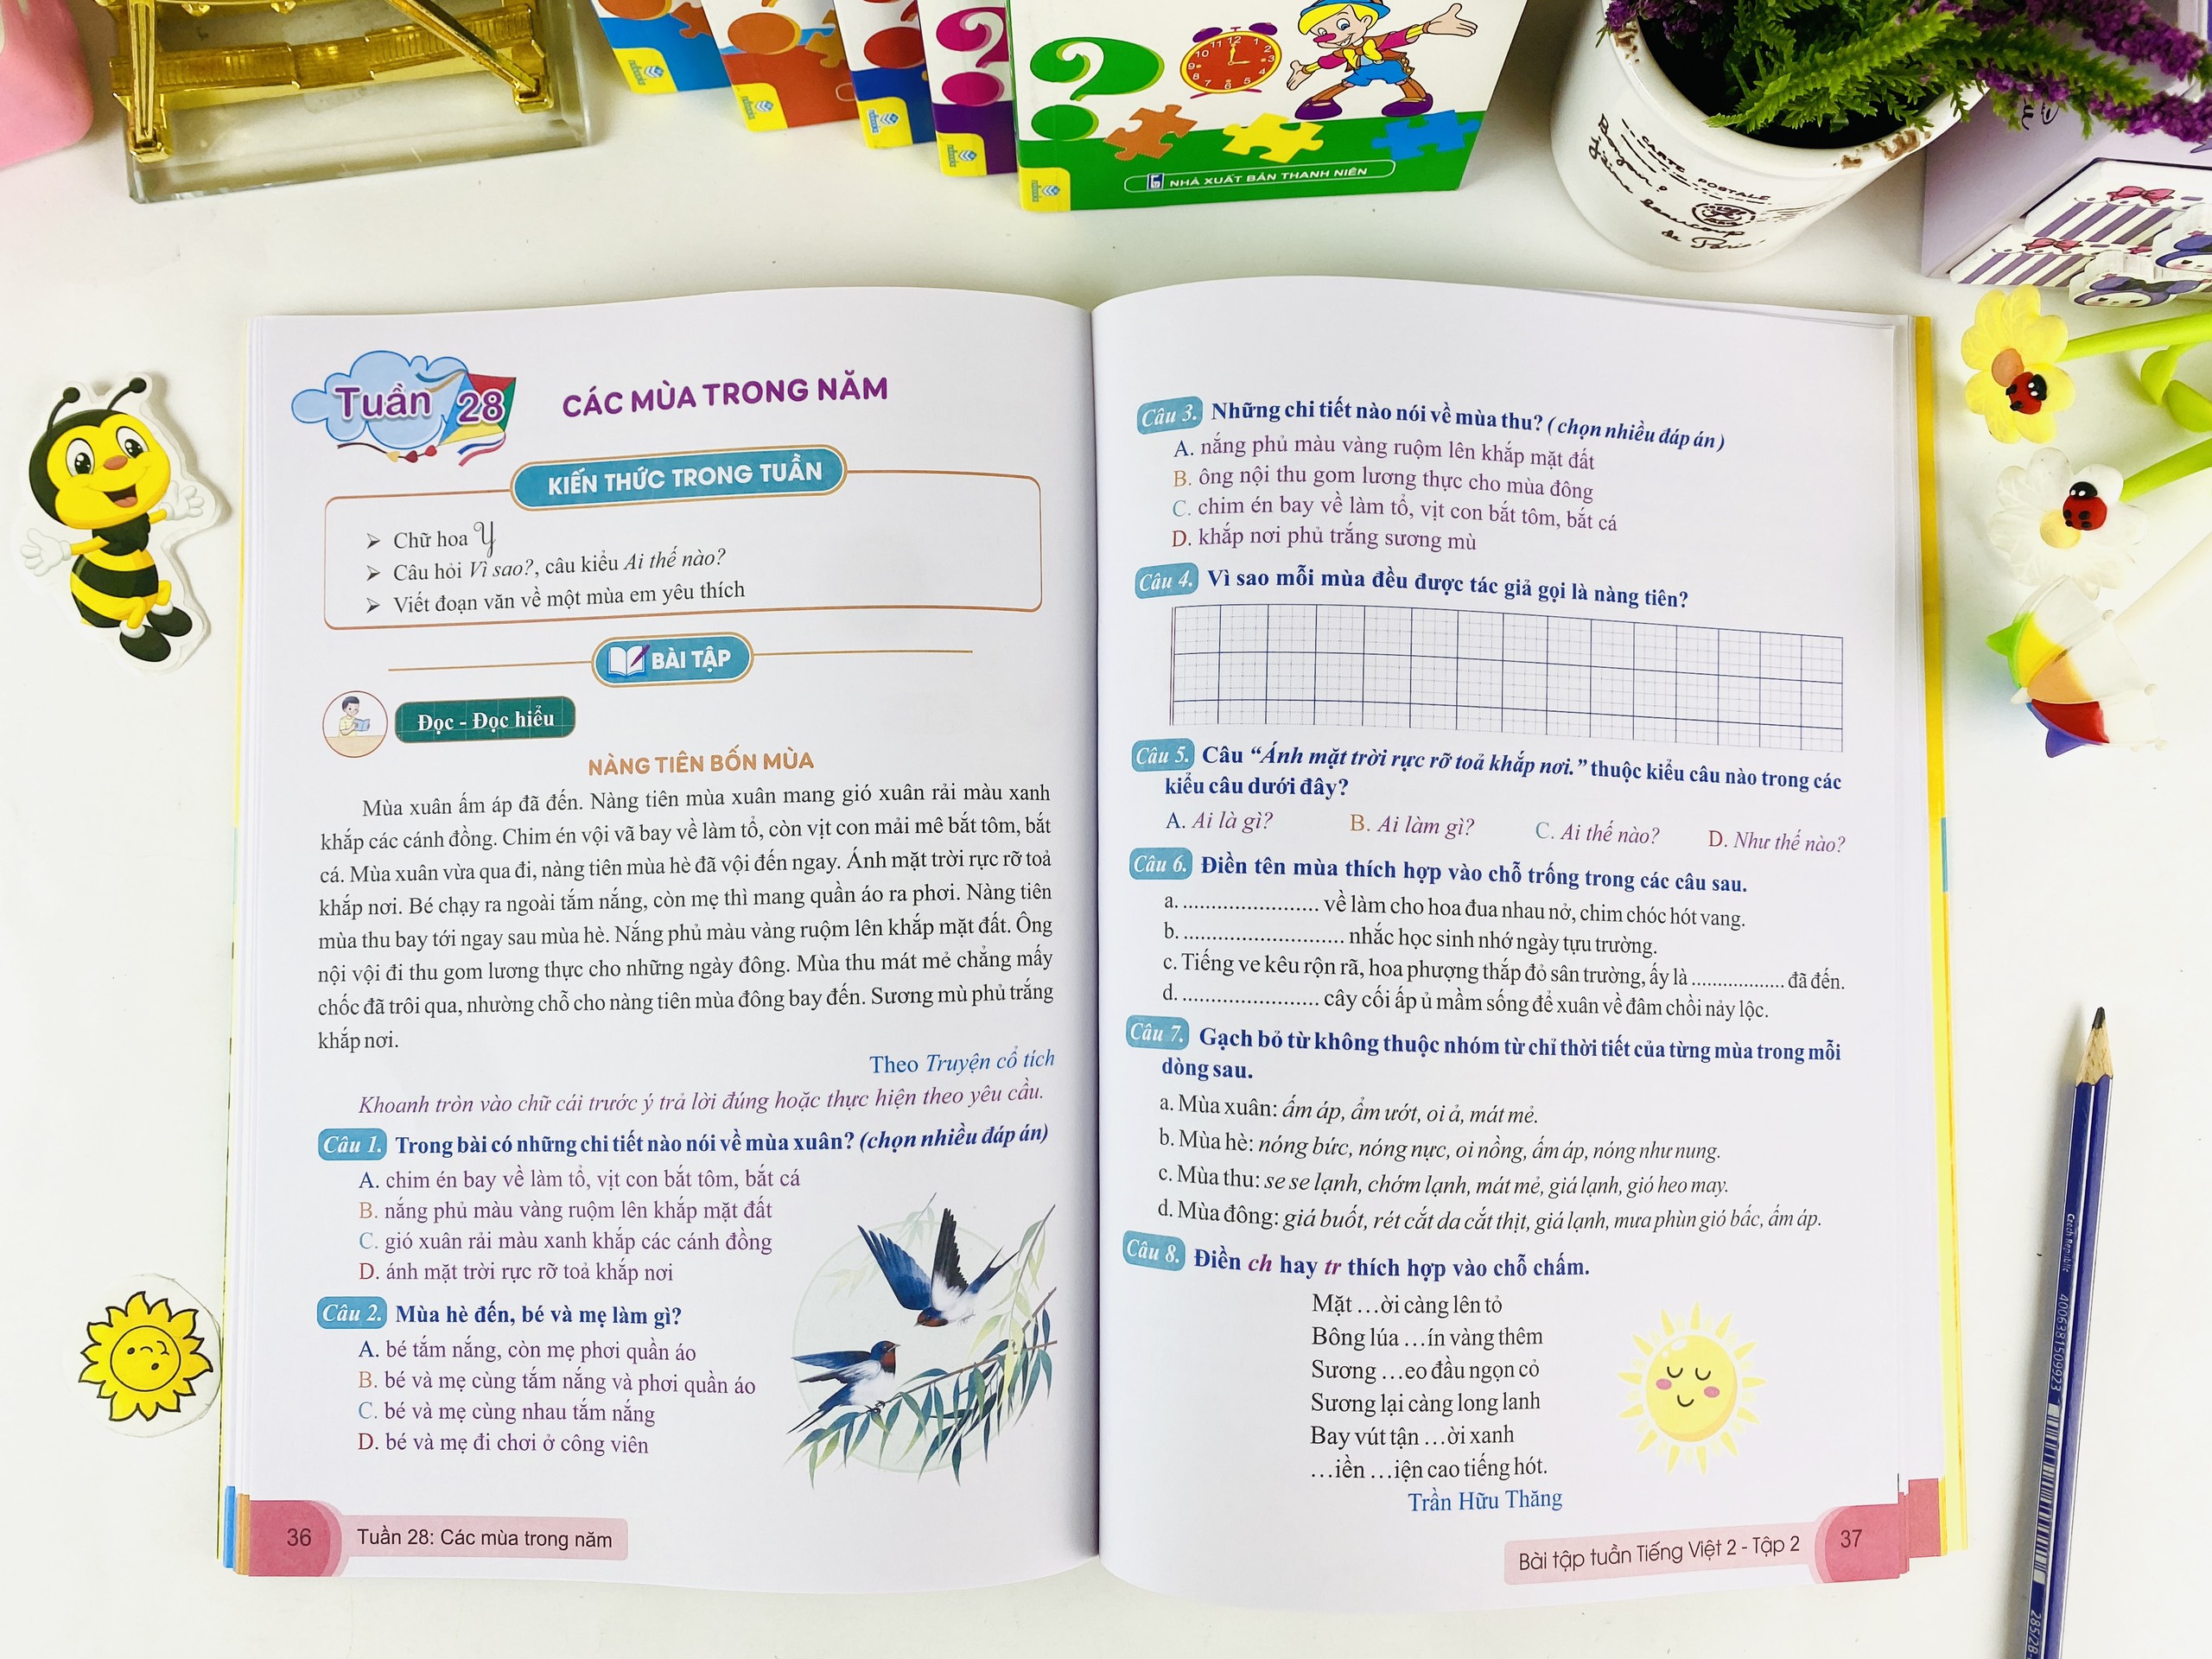 NHÀ XUẤT BẢN THANH NIÊN
CARTE POSTALE
Tuần 28
CÁC MÙA TRONG NĂM
KIẾN THỨC TRONG TUẦN
➢ Chữ hoa Y
➢ Câu hỏi Vì sao?, câu kiểu Ai thế nào?
➢ Viết đoạn văn về một mùa em yêu thích
BÀI TẬP
Đọc - Đọc hiểu
NÀNG TIÊN BỐN MÙA
Mùa xuân ấm áp đã đến. Nàng tiên mùa xuân mang gió xuân rải màu xanh
khắp các cánh đồng. Chim én vội vã bay về làm tổ, còn vịt con mải mê bắt tôm, bắt
cá. Mùa xuân vừa qua đi, nàng tiên mùa hè đã vội đến ngay. Ánh mặt trời rực rỡ toả
khắp nơi. Bé chạy ra ngoài tắm nắng, còn mẹ thì mang quần áo ra phơi. Nàng tiên
mùa thu bay tới ngay sau mùa hè. Nắng phủ màu vàng ruộm lên khắp mặt đất. Ông
nội vội đi thu gom lương thực cho những ngày đông. Mùa thu mát mẻ chẳng mấy
chốc đã trôi qua, nhường chỗ cho nàng tiên mùa đông bay đến. Sương mù phủ trắng
khắp nơi.
Theo Truyện cổ tích
Khoanh tròn vào chữ cái trước ý trả lời đúng hoặc thực hiện theo yêu cầu.
Câu 1. Trong bài có những chi tiết nào nói về mùa xuân? (chọn nhiều đáp án)
A. chim én bay về làm tổ, vịt con bắt tôm, bắt cá
B. nắng phủ màu vàng ruộm lên khắp mặt đất
C. gió xuân rải màu xanh khắp các cánh đồng
D. ánh mặt trời rực rỡ toả khắp nơi
Câu 2. Mùa hè đến, bé và mẹ làm gì?
A. bé tắm nắng, còn mẹ phơi quần áo
B. bé và mẹ cùng tắm nắng và phơi quần áo
C. bé và mẹ cùng nhau tắm nắng
D. bé và mẹ đi chơi ở công viên
36
Tuần 28: Các mùa trong năm
Câu 3. Những chi tiết nào nói về mùa thu? (chọn nhiều đáp án)
A. nắng phủ màu vàng ruộm lên khắp mặt đất
B. ông nội thu gom lương thực cho mùa đông
C. chim én bay về làm tổ, vịt con bắt tôm, bắt cá
D. khắp nơi phủ trắng sương mù
Câu 4. Vì sao mỗi mùa đều được tác giả gọi là nàng tiên?
Câu 5. Câu “Ánh mặt trời rực rỡ toả khắp nơi.” thuộc kiểu câu nào trong các
kiểu câu dưới đây?
A. Ai là gì? B. Ai làm gì? C. Ai thế nào? D. Như thế nào?
Câu 6. Điền tên mùa thích hợp vào chỗ trống trong các câu sau.
a. ........................ về làm cho hoa đua nhau nở, chim chóc hót vang.
b. ............................ nhắc học sinh nhớ ngày tựu trường.
c. Tiếng ve kêu rộn rã, hoa phượng thắp đỏ sân trường, ấy là ................. đã đến.
d. ........................ cây cối ấp ủ mầm sống để xuân về đâm chồi nảy lộc.
Câu 7. Gạch bỏ từ không thuộc nhóm từ chỉ thời tiết của từng mùa trong mỗi
dòng sau.
a. Mùa xuân: ấm áp, ẩm ướt, oi ả, mát mẻ.
b. Mùa hè: nóng bức, nóng nực, oi nồng, ấm áp, nóng như nung.
c. Mùa thu: se se lạnh, chớm lạnh, mát mẻ, giá lạnh, gió heo may.
d. Mùa đông: giá buốt, rét cắt da cắt thịt, giá lạnh, mưa phùn gió bấc, ấm áp.
Câu 8. Điền ch hay tr thích hợp vào chỗ chấm.
Mặt …ời càng lên tỏ
Bông lúa …ín vàng thêm
Sương …eo đầu ngọn cỏ
Sương lại càng long lanh
Bay vút tận …ời xanh
…iền …iện cao tiếng hót.
Trần Hữu Thăng
Bài tập tuần Tiếng Việt 2 - Tập 2
37
Czech Republic
4006381509923